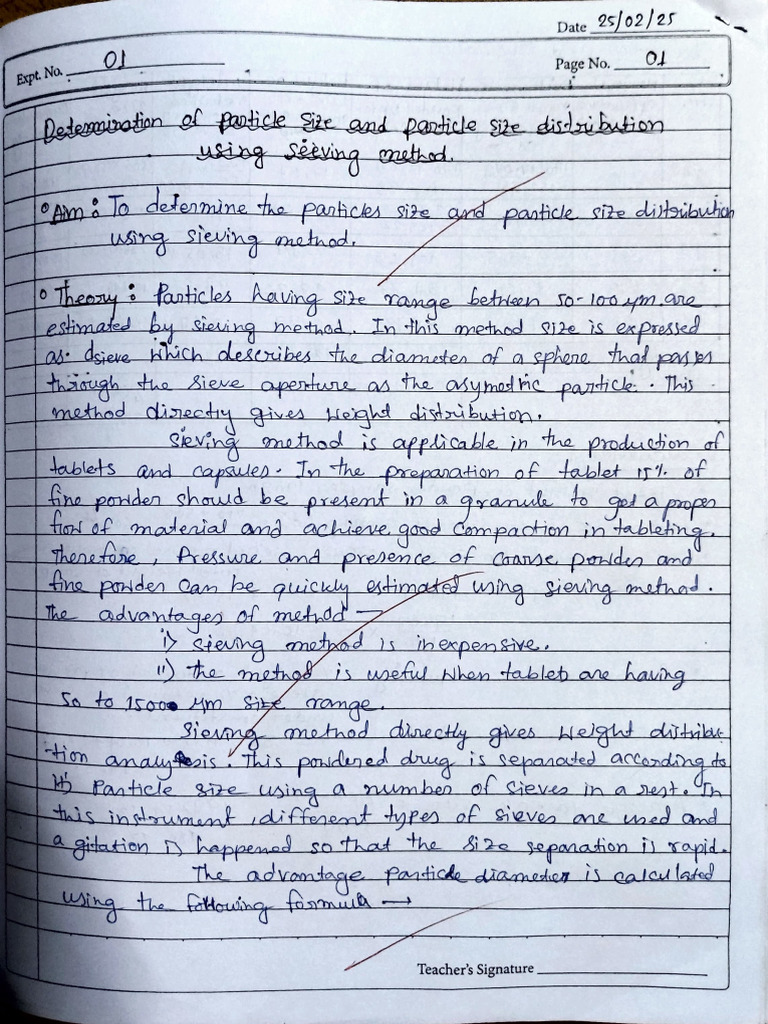 Date 25/02/25
Expt. No. 01
Page No. 01
Determination of particle size and particle size distribution
using seeving method.
Aim : To determine the particles size and particle size distribution
using sieving method.
Theory : Particles having size range between 50-100 μm are
estimated by sieving method. In this method size is expressed
as dsieve which describes the diameter of a sphere that passes
through the sieve aperture as the asymetric particle. This
method directly gives weight distribution.
Sieving method is applicable in the production of
tablets and capsules. In the preparation of tablet 15% of
fine powder should be present in a granule to get a proper
flow of material and achieve good compaction in tableting.
Therefore, Pressure and presence of coarse powder and
fine powder can be quickly estimated using sieving method.
The advantages of method —
i) sieving method is inexpensive.
ii) the method is useful when tablets are having
50 to 1500 μm size range.
Sieving method directly gives weight distribu-
-tion analysis. This powdered drug is separated according to
its Particle size using a number of sieves in a rest. In
this instrument, different types of sieves are used and
agitation is happened so that the size separation is rapid.
The advantage particle diameter is calculated
using the following formula →
Teacher's Signature